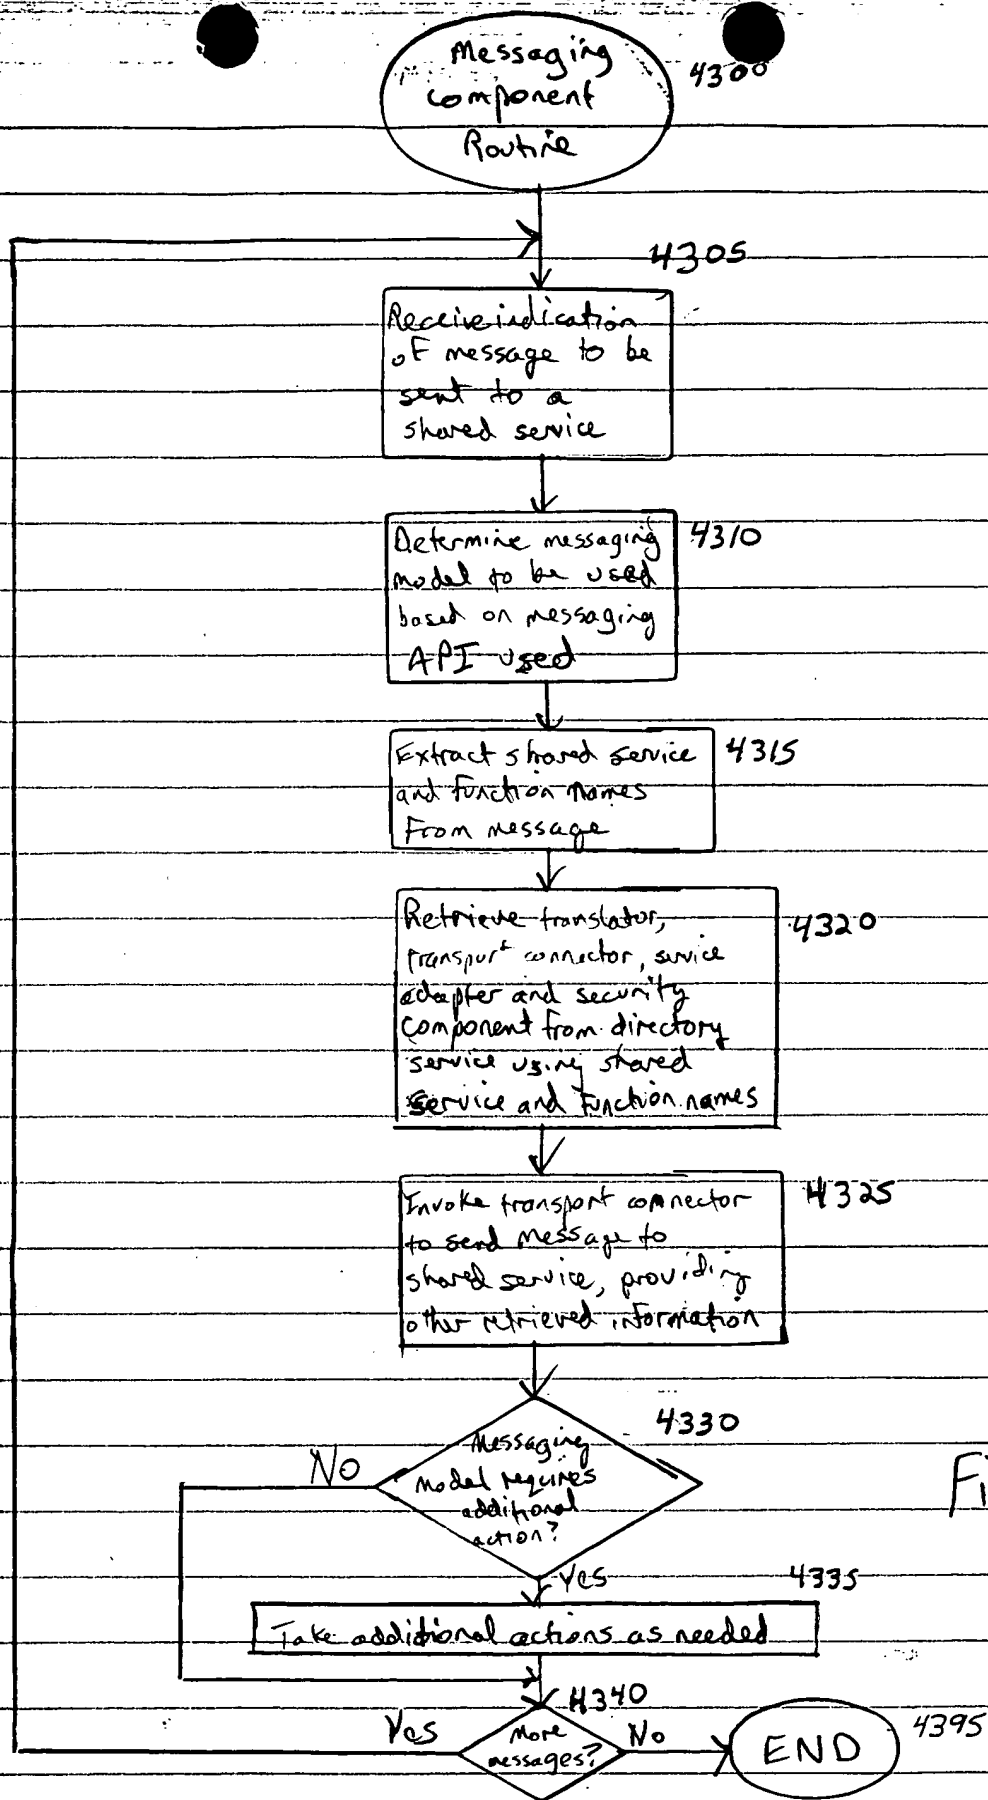 Messaging
4300
component
Routine
4305
Receive indication
of message to be
sent to a
shared service
Determine messaging
4310
model to be used
based on messaging
API used
Extract shared service
4315
and function names
From message
Retrieve translator,
4320
transport connector, service
adapter and security
component from directory
service using shared
service and function names
Invoke transport connector
4325
to send message to
shared service, providing
other retrieved information
4330
Messaging
No
model requires
additional
action?
Yes
4335
Take additional actions as needed
4340
Yes
More
messages?
No
END
4395